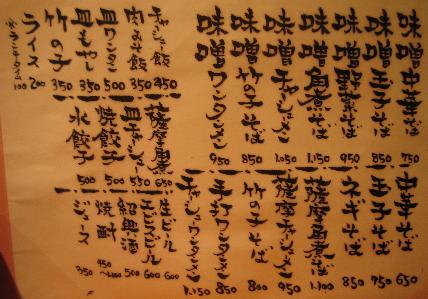 味噌中華そば 750
味噌玉子そば 850
味噌野菜そば 950
味噌角煮そば 1.150
味噌チャシューメン 1.050
味噌竹の子そば 850
味噌ワンタンメン 950
中華そば 650
玉子そば 750
ネギそば 850
薩摩角煮そば 1.100
薩摩チャシューメン 950
竹の子そば 800
手打ワンタンメン 850
チャシューワンタンメン 1.150
チャシュー飯 450
肉みそ飯 350
皿ワンタン 500
皿もやし 350
竹の子 350
ライス 200
ランチタイム 100
薩摩黒 650
皿チャシュー 550
焼餃子 500
水餃子 500
生ビール 600
エビスビール 600
紹興酒 500
焼酎 450〜
ジュース 350